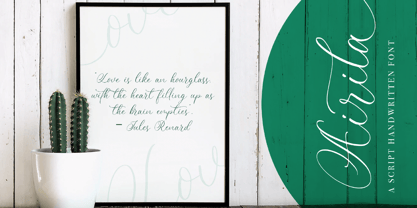 Love
"Love is like an hourglass,
with the heart filling up as
the brain empties."
– Jules Renard
Love
Airila
A SCRIPT HANDWRITTEN FONT